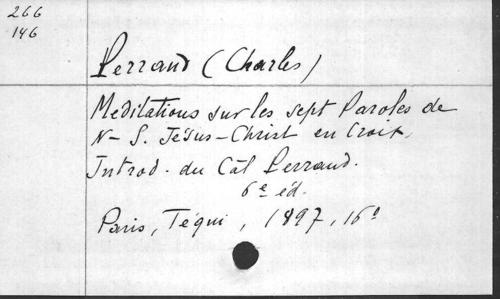 266
146
Perraud (Charles)
Méditations sur les sept Paroles de
N-S. Jésus-Christ en Croix,
Introd. du Cal Perraud.
6e éd.
Paris, Téqui, 1897, 16o